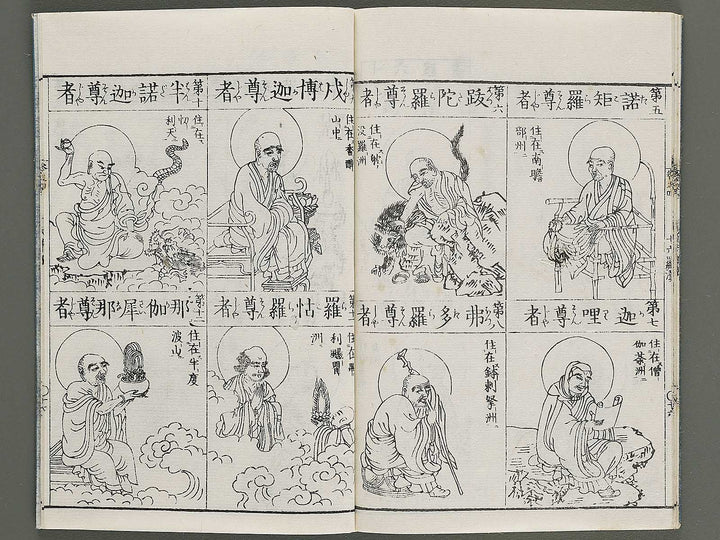 第五
諾矩羅尊者
住在南瞻
部州
第六
跋陀羅尊者
住在
沒羅洲
第七
迦哩尊者
住在僧
伽茶洲
第八
弗多羅尊者
住在鉢剌拏洲
戍博迦尊者
住在香
山中
第十
半諾迦尊者
住在
利天
羅怙羅尊者
利颺瞿
洲
第十二
那伽犀那尊者
住在半度
波山